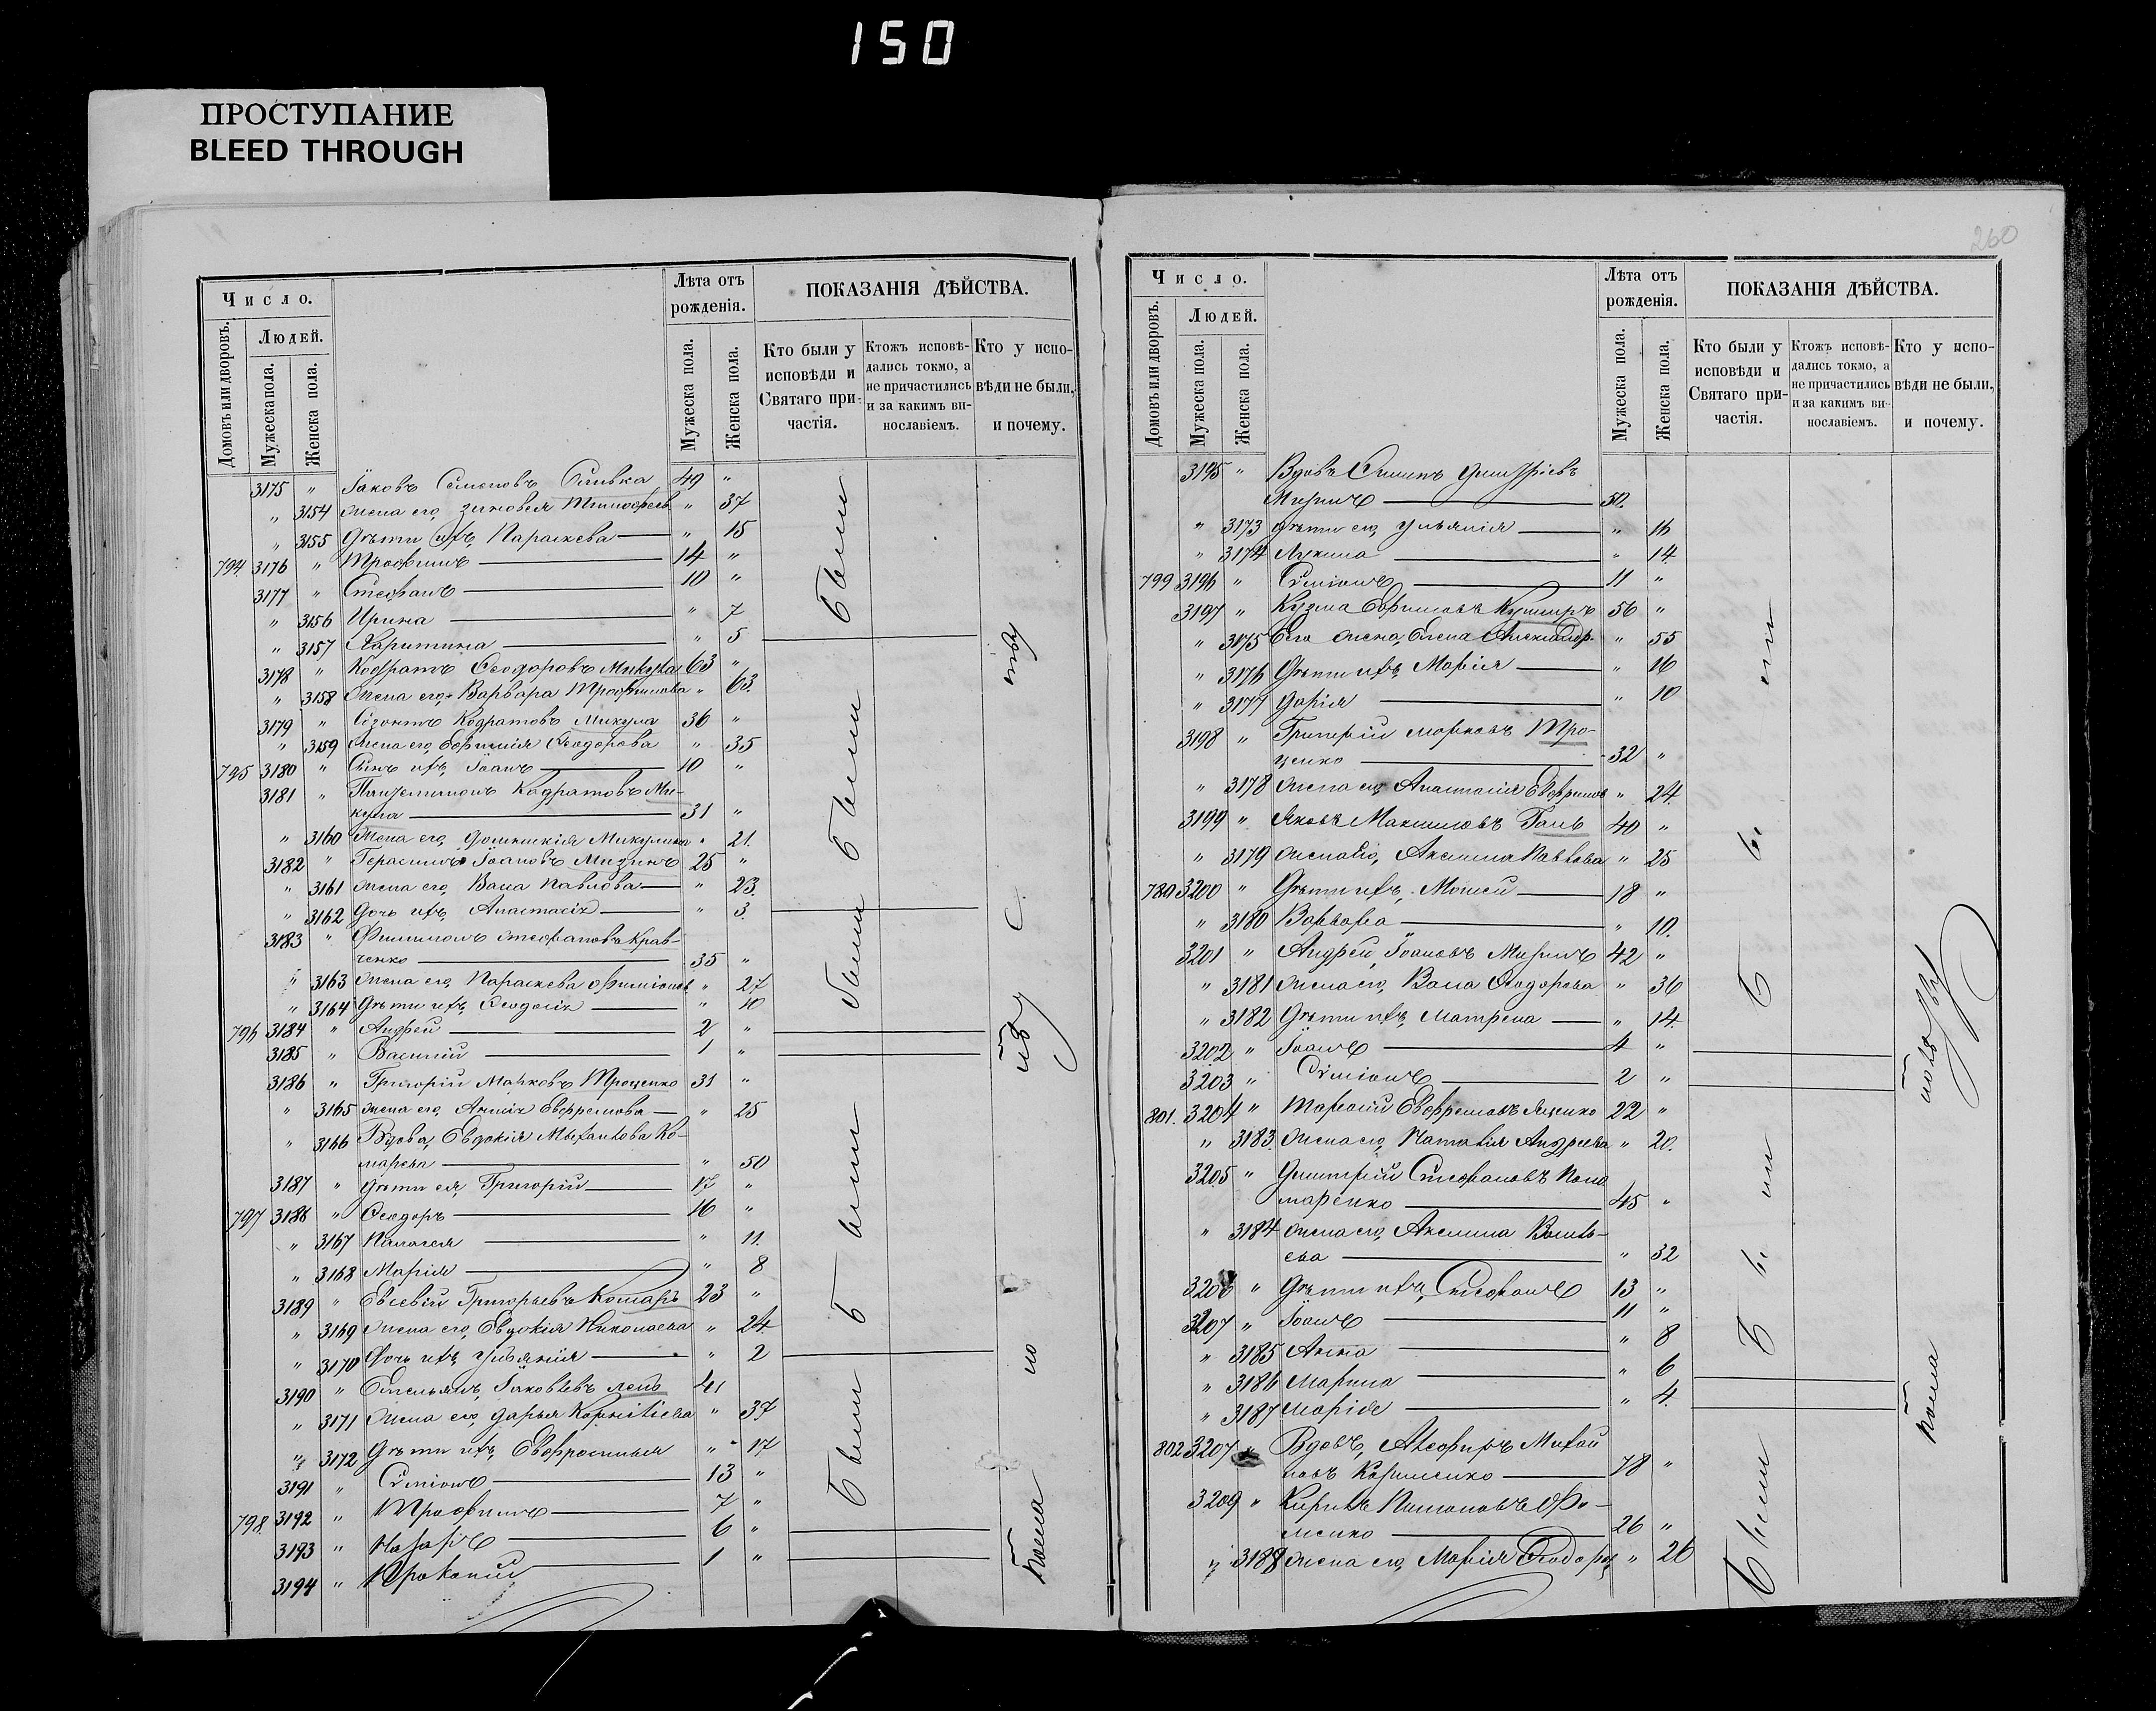 150
ПРОСТУПАНИЕ
BLEED THROUGH
Число.
Лѣта отъ рожденія.
ПОКАЗАНІЯ ДѢЙСТВА.
Домовъ или дворовъ.
Людей.
Мужеска пола.
Женска пола.
Мужеска пола.
Женска пола.
Кто были у исповѣди и Святаго причастія.
Ктожъ исповѣдались токмо, а не причастились и за какимъ винославіемъ.
Кто у исповѣди не были, и почему.
3175 " Іаковъ Семеновъ Сливка 49 "
" 3154 жена его, Зиновея Тимофеев " 37
" 3155 Дѣти ихъ, Параскева " 15
794 3176 " Трофимъ 14 "
3177 " Стефанъ 10 "
" 3156 Ирина " 7
" 3157 Харитина " 5
3178 " Кодратъ Ѳеодоровъ Микула 63 "
" 3158 Жена его, Варвара Трофимова " 63.
3179 " Созонтъ Кодратовъ Микула 36 "
" 3159 Жена его, Евфимія Ѳеодорова " 35
795 3180 " Сынъ ихъ, Іоанъ 10 "
3181 " Пантелимонъ Кадратовъ Ми-
кула 31 "
" 3160 Жена его, Домникія Микулина " 21.
3182 " Герасимъ Іоановъ Мизинъ 25 "
" 3161 жена его, Вана Павлова " 23.
" 3162 Дочь ихъ, Анастасія " 3.
3183 " Филимонъ Стефановъ Крав-
ченко 35 "
" 3163 Жена его, Параскева Филимонов " 27
" 3164 Дѣти ихъ, Ѳеодосія " 10
796 3184 " Андрей 2 "
3185 " Василій 1 "
3186 " Григорій Марковъ Троценко 31 "
" 3165 жена его, Анисія Евфремова " 25
" 3166 Вдова, Евдокія Михаилова Ко-
марева " 50
3187 " Дѣти ея, Григорій 17 "
797 3188 " Ѳеодоръ 16 "
" 3167 Палагея " 11.
" 3168 Марія " 8
3189 " Евсевій Григорьевъ Комаръ 23 "
" 3169 Жена его, Евдокія Николаева " 24
" 3170 Дочь ихъ, Ульянія " 2
3190 " Емельянъ, Іаковлевъ Лень 41
" 3171 Жена его, Дарья Корнѣліева " 37
" 3172 Дѣти ихъ, Евфросинья " 17
3191 " Симіонъ 13 "
798 3192 " Трофимъ 7 "
3193 " Назаръ 6 "
3194 " Прокопій 1 "
Были
Были
были
Были
Были
260
Число.
Лѣта отъ рожденія.
ПОКАЗАНІЯ ДѢЙСТВА.
Домовъ или дворовъ.
Людей.
Мужеска пола.
Женска пола.
Мужеска пола.
Женска пола.
Кто были у исповѣди и Святаго причастія.
Ктожъ исповѣдались токмо, а не причастились и за какимъ винославіемъ.
Кто у исповѣди не были, и почему.
3195 " Вдовъ Дмитріевъ
50.
" 3173 Дѣти его, Ульянія " 16
" 3174 Лукина " 14
799 3196 " Симіонъ 11 "
3197 " Кузма Ефимовъ Кушниръ 56 "
" 3175 Его жена, Елена Александр. " 55
" 3176 Дѣти ихъ, Марія " 16
" 3177 Дарія " 10
3198 " Григорій Марковъ Тро-
ценко 32 "
" 3178 Жена его, Анастасія Евфремов " 24.
3199 " Яковъ Максимовъ Гань 40 "
" 3179 Жена его, Акилина Павлова " 25
3200 " Дѣти ихъ, Моисей 18 "
" 3180 Варвара " 10.
3201 " Андрей, Іоановъ 42 "
" 3181 Жена его, Вана Ѳеодорова " 36
" 3182 Дѣти ихъ, Матрена " 14.
3202 " Іоанъ 4 "
3203 " Симіонъ 2 "
801. 3204 " Тарасій Евфремовъ Яценко 22 "
" 3183. Жена его, Наталія Андреева " 20.
3205 " Димитрій Стефановъ Поно
маренко 45 "
" 3184 Жена его, Акилина Василь-
ева " 32
3206 " Дѣти ихъ, Стефанъ 13 "
3207 " Іоанъ 11 "
" 3185 Анна " 8
" 3186 Марина " 6
" 3187 Марія " 4.
802 3207 Вдовъ, Михай
ловъ 78 "
3209 " Кирилъ Фо-
менко 26 "
" 3188 Жена его, Марія Ѳеодоров " 26
Были